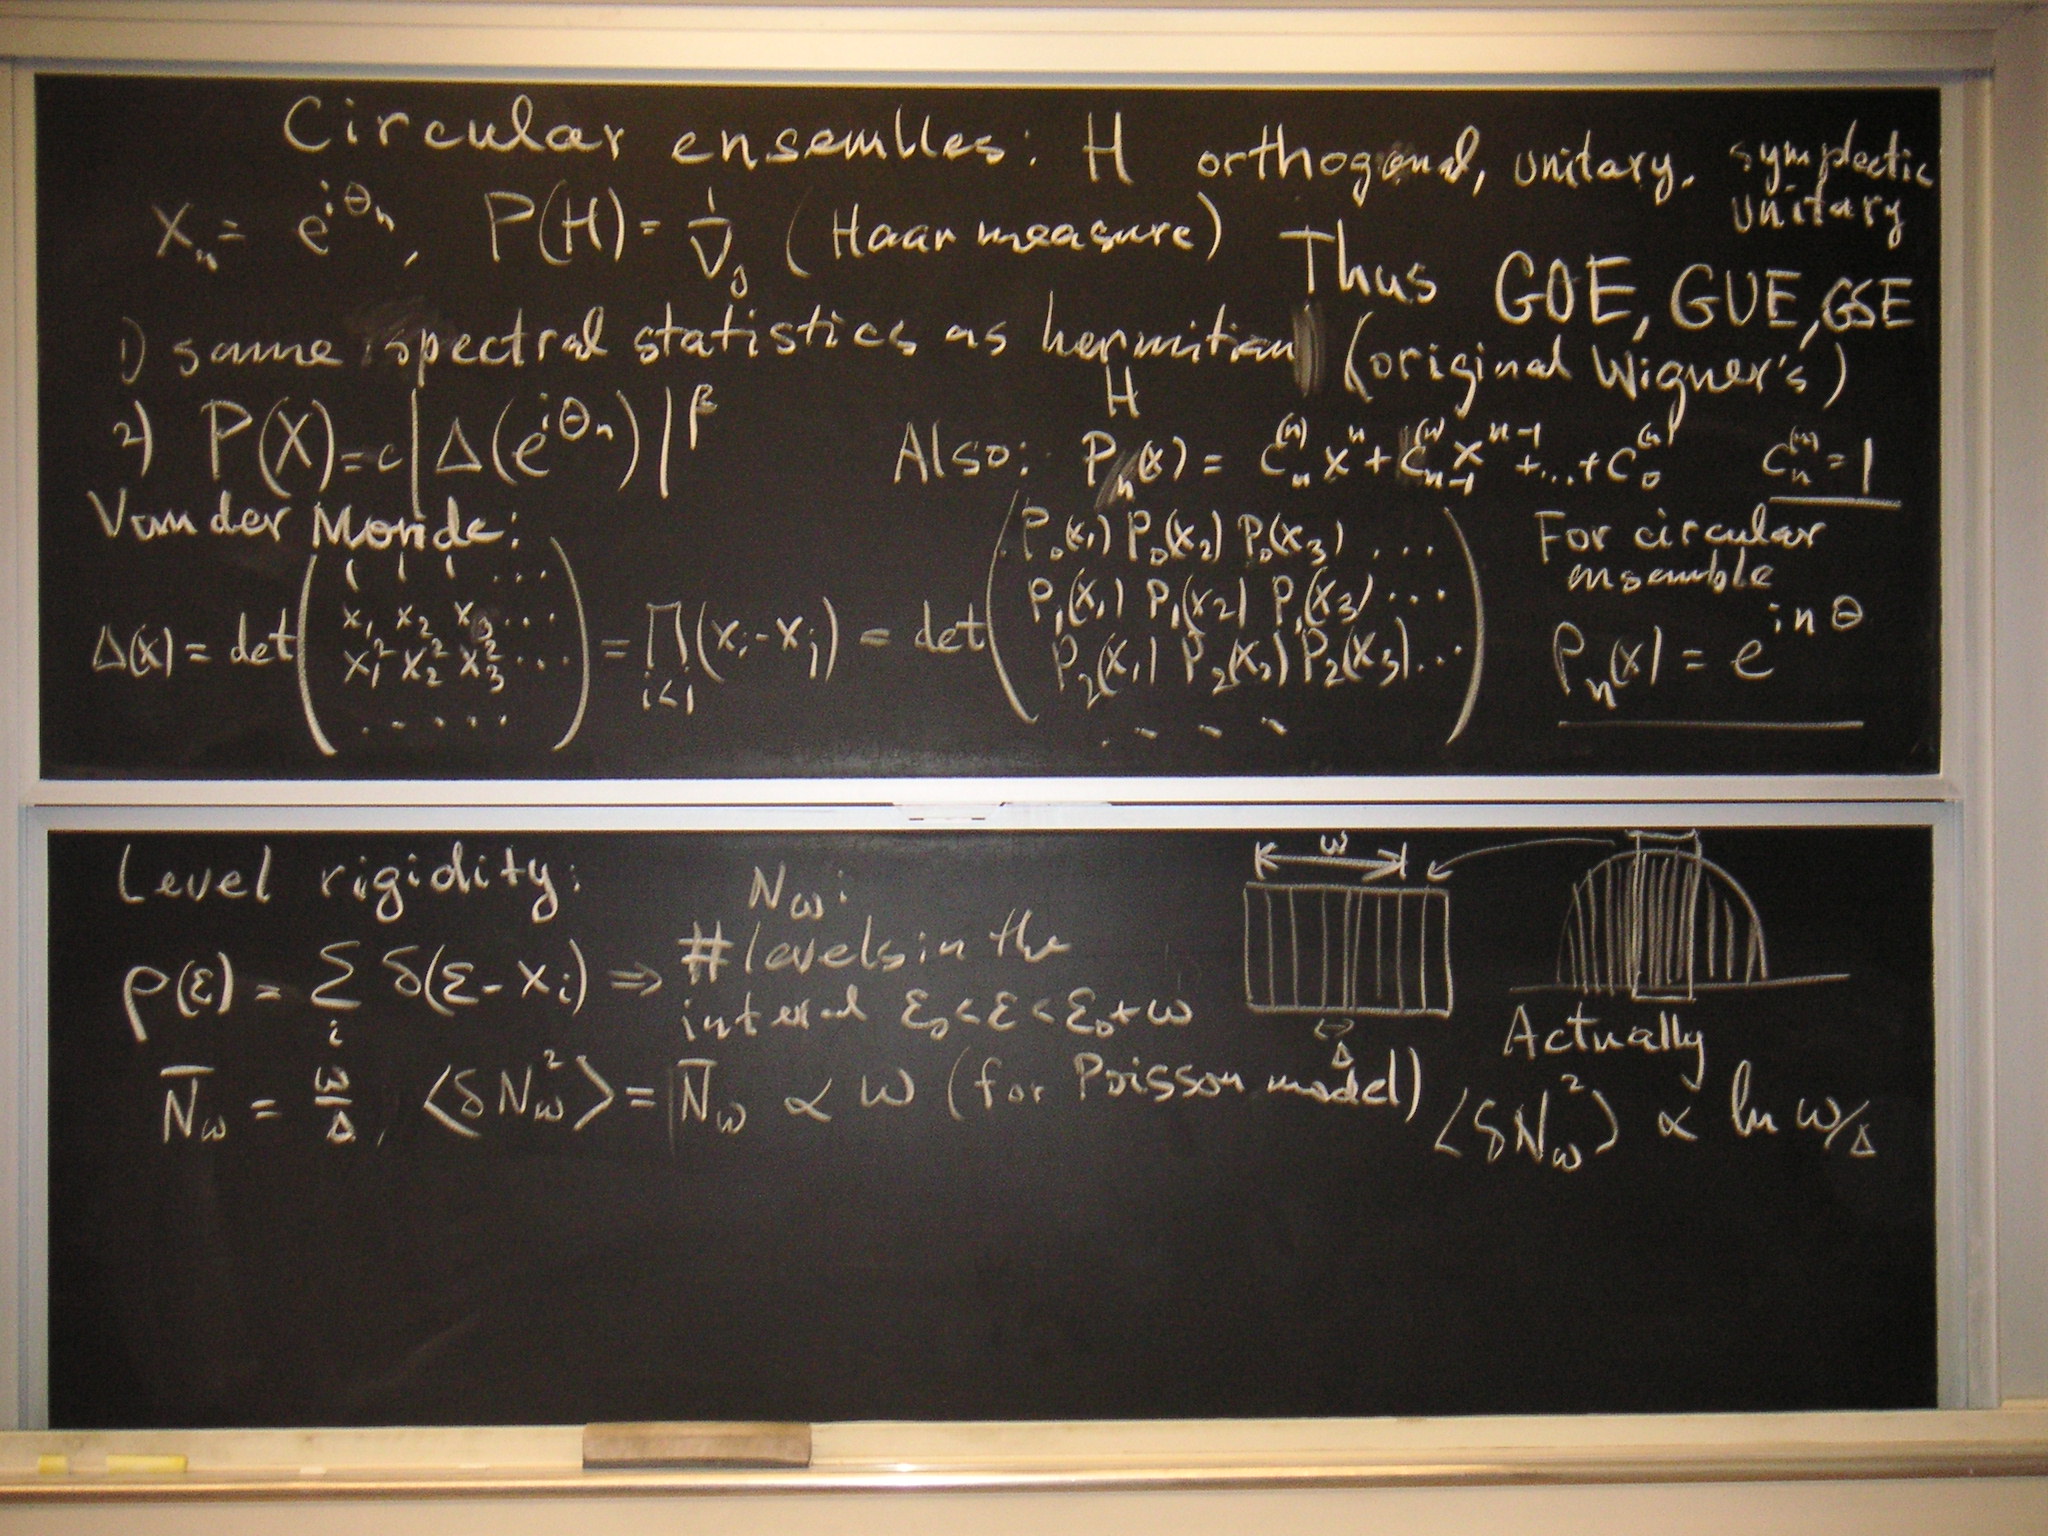 Circular ensembles: H orthogonal, unitary, symplectic unitary
Xₙ = e^{iθₙ}, P(H) = 1/V₀ (Haar measure)
Thus GOE, GUE, GSE
(original Wigner's)
1) same spectral statistics as hermitian H
2) P(X) = c|Δ(e^{iθₙ})|^β
Also: Pₙ(x) = Cₙ^{(n)} xⁿ + C_{n-1}^{(n)} x^{n-1} + ... + C₀^{(n)} Cₙ^{(n)} = 1
Van der Monde:
Δ(x) = det ( 1 1 1 ...
x₁ x₂ x₃ ...
x₁² x₂² x₃² ...
..... ) = ∏_{i<j} (xᵢ - xⱼ) = det ( P₀(x₁) P₀(x₂) P₀(x₃) ...
P₁(x₁) P₁(x₂) P₁(x₃) ...
P₂(x₁) P₂(x₂) P₂(x₃) ...
.... )
For circular
ensemble
Pₙ(x) = e^{inθ}
Level rigidity:
ρ(ε) = Σᵢ δ(ε - xᵢ) ⇒
N_ω:
# levels in the
interval ε₀ < ε < ε₀ + ω
ω
Δ
N̄_ω = ω/Δ, ⟨δN_ω²⟩ = N̄_ω ∝ ω (for Poisson model)
Actually
⟨δN_ω²⟩ ∝ ln ω/Δ